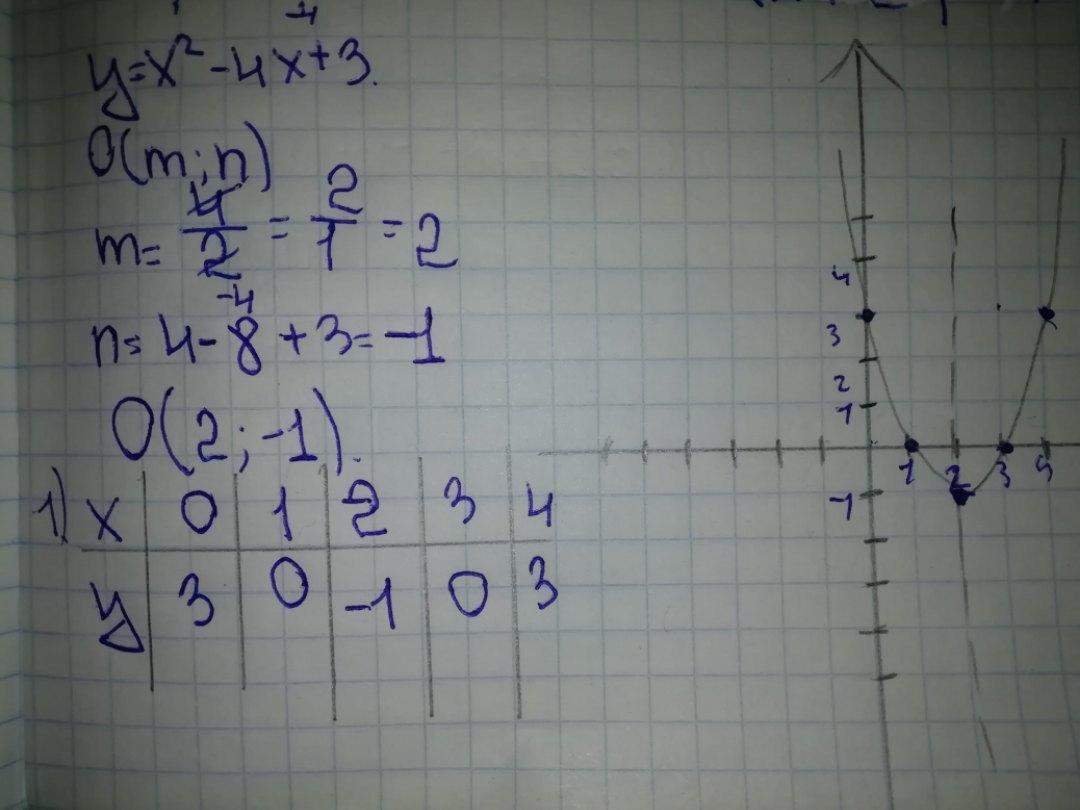 y=x²-4x+3.
O(m;n)
m= 4/2 = 2/1 = 2
-4
n= 4-8+3=-1
O(2;-1).
1) x 0 1 2 3 4
y 3 0 -1 0 3
4
3
2
1
1 2 3 4
-1